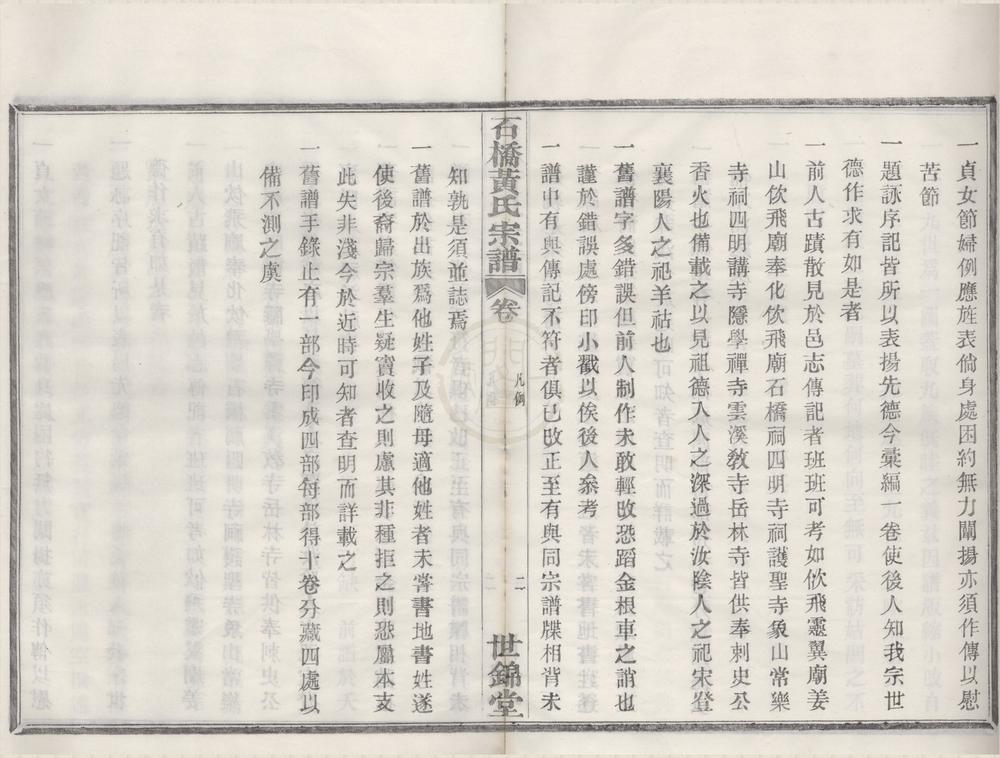 一貞女節婦例應旌表倘身處困約無力闡揚亦須作傳以慰
苦節
一題詠序記皆所以表揚先德今彙編一卷使後人知我宗世
德作求有如是者
一前人古蹟散見於邑志傳記者班班可考如佽飛靈翼廟姜
山佽飛廟奉化佽飛廟石橋祠四明寺祠護聖寺象山常樂
寺祠四明講寺隱學禪寺雲溪敎寺岳林寺皆供奉刺史公
香火也備載之以見祖德入人之深過於汝陰人之祀宋登
襄陽人之祀羊祜也
一舊譜字多錯誤但前人制作未敢輕改恐蹈金根車之誚也
謹於錯誤處傍印小戳以俟後人叅考
一譜中有與傳記不符者俱已改正至有與同宗譜牒相背未
石橋黃氏宗譜
卷
凡例
二
世錦堂
知孰是須並誌焉
一舊譜於出族爲他姓子及隨母適他姓者未嘗書地書姓遂
使後裔歸宗羣生疑竇收之則慮其非種拒之則恐屬本支
此失非淺今於近時可知者查明而詳載之
一舊譜手錄止有一部今印成四部每部得十卷分藏四處以
備不測之虞